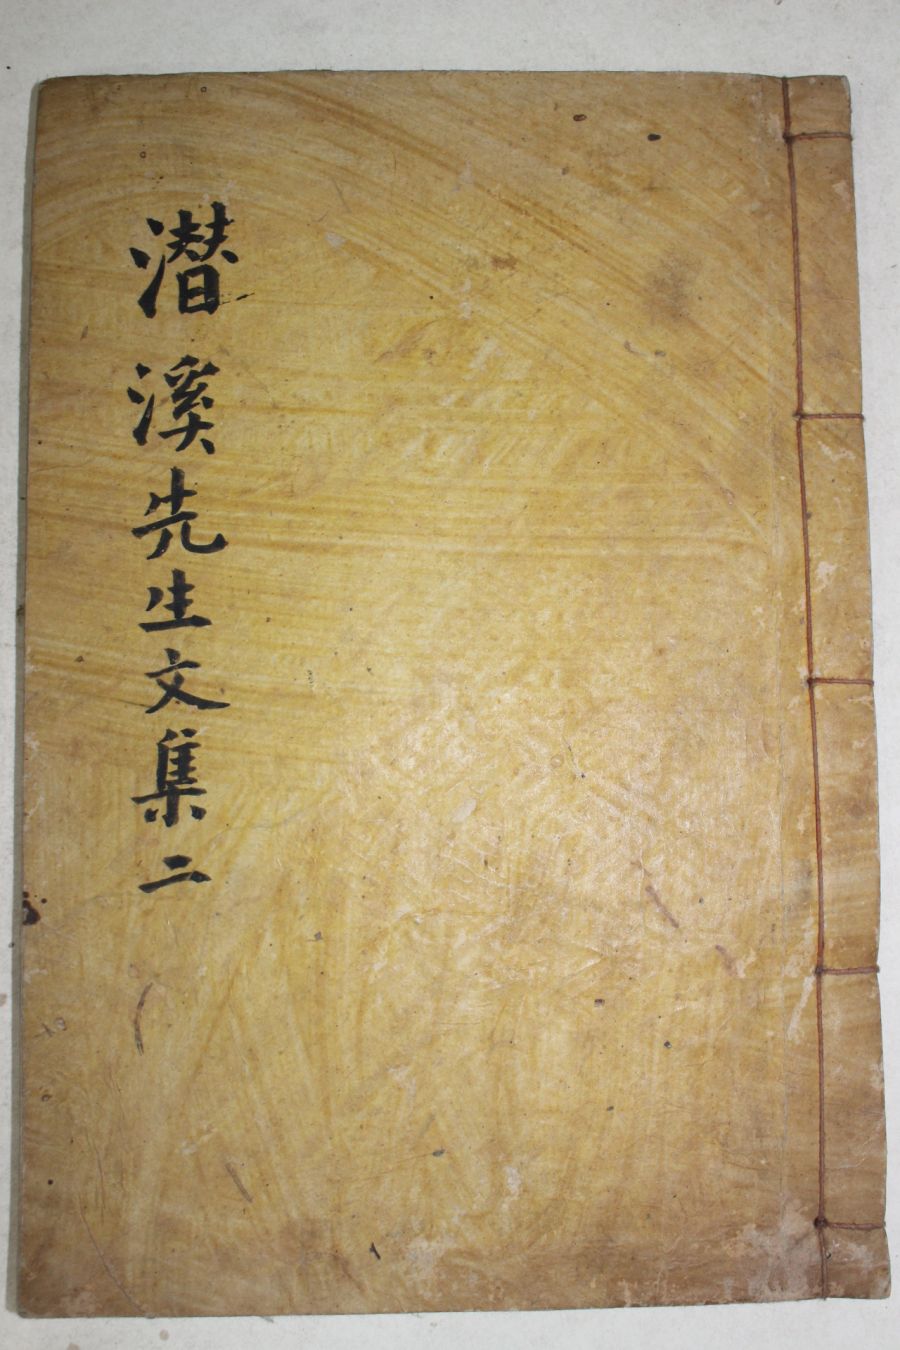 潜溪先生文集二